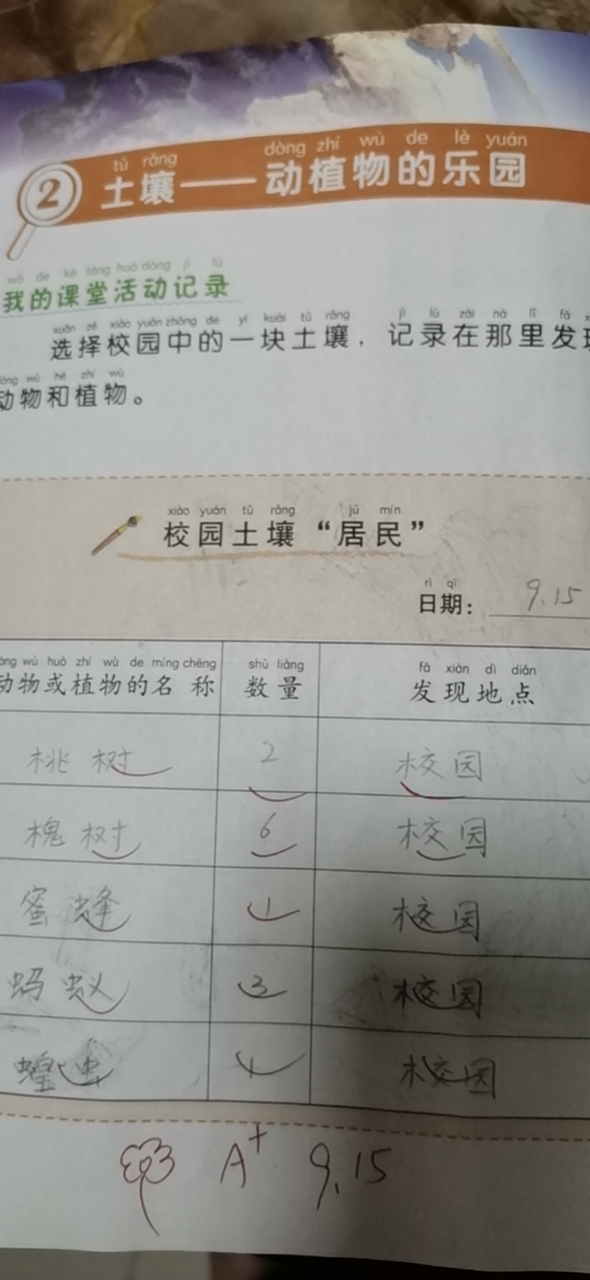 tǔ rǎng dòng zhí wù de lè yuán
2 土壤——动植物的乐园
wǒ de kè táng huó dòng jì lù
我的课堂活动记录
xuǎn zé xiào yuán zhōng de yí kuài tǔ rǎng jì lù zài nà lǐ fā
选择校园中的一块土壤，记录在那里发现
wù hé zhí wù
动物和植物。
xiào yuán tǔ rǎng jū mín
校园土壤“居民”
rì qī
日期：9.15
wù huò zhí wù de míng chēng shù liàng fā xiàn dì diǎn
动物或植物的名称 数量 发现地点
桃树 2 校园
槐树 6 校园
蜜蜂 1 校园
蚂蚁 3 校园
蝗虫 1 校园
A+ 9.15